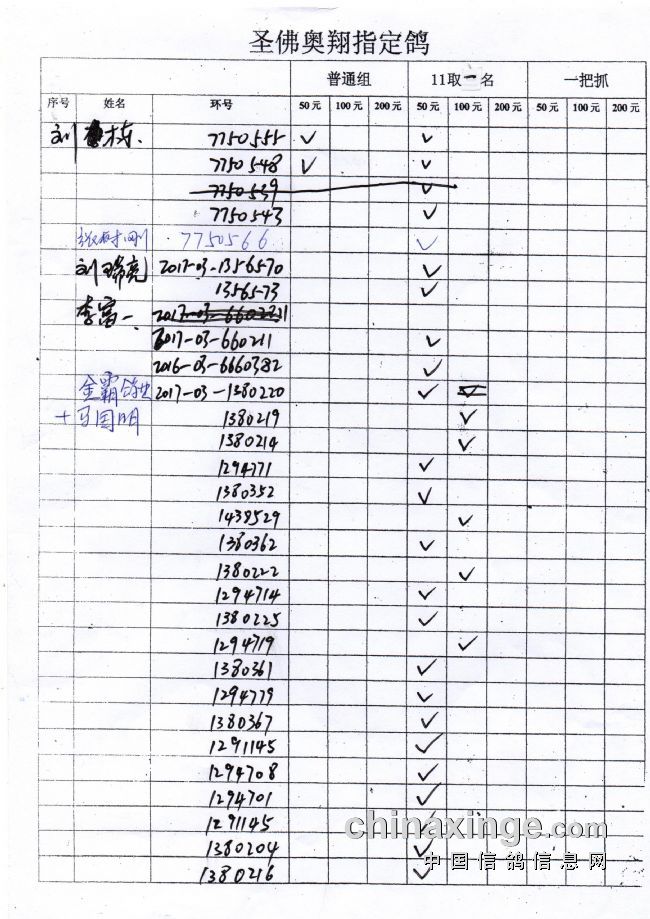 圣佛奥翔指定鸽
普通组 11取一名 一把抓
序号 姓名 环号 50元 100元 200元 50元 100元 200元 50元 100元 200元
刘 东 7750555 ✓ ✓
7750548 ✓ ✓
7750539 ✓
7750543 ✓
7750566 ✓
刘瑞亮 2017-03-1356570 ✓
1356573 ✓
李富一 2017-03-
2017-03-660211 ✓
2016-03-6660382 ✓
金霸鸽业 2017-03-1380220 ✓ ✓
+马国明 1380219 ✓
1380214 ✓
1294771 ✓
1380352 ✓
1438529 ✓
1380362 ✓
1380222 ✓
1294714 ✓
1380225 ✓
1294719 ✓
1380361 ✓
1294779 ✓
1380367 ✓
1291145 ✓
1294708 ✓
1294701 ✓
1291145 ✓
1380204 ✓
1380216 ✓
chinaxinge.com
中国信鸽信息网